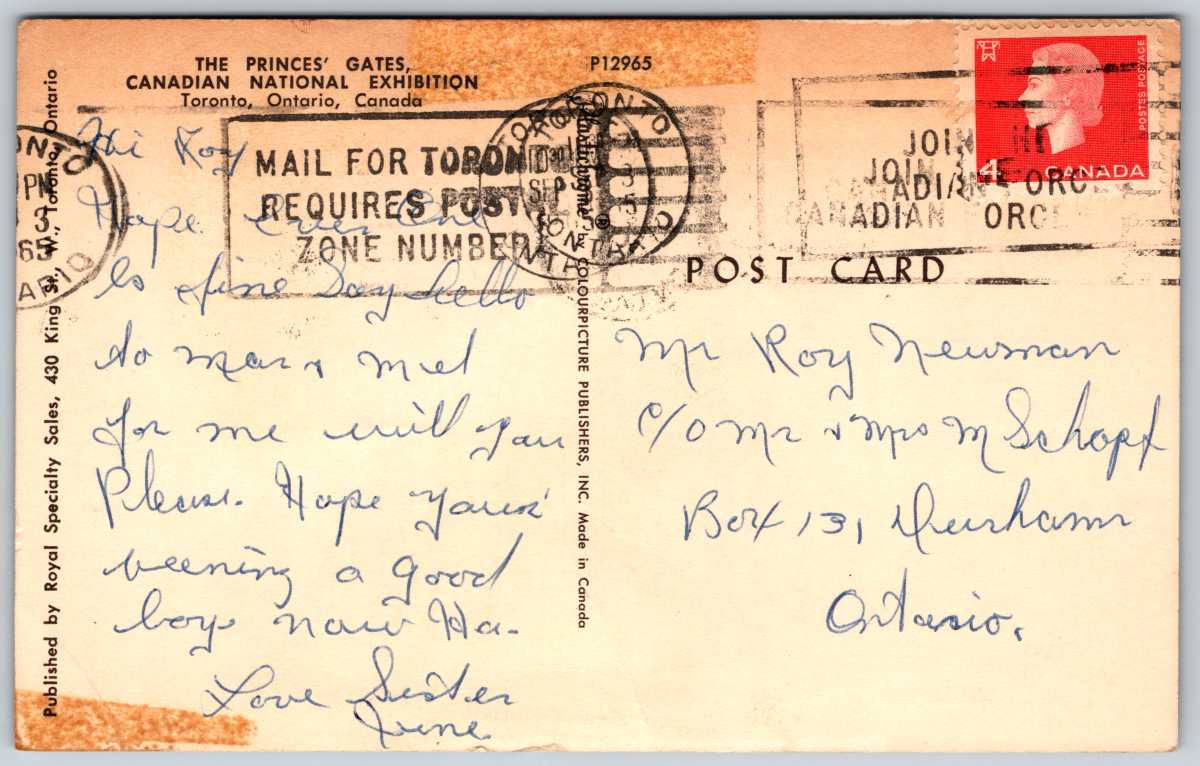 THE PRINCES' GATES,
CANADIAN NATIONAL EXHIBITION
Toronto, Ontario, Canada
P12965
Published by Royal Specialty Sales, 430 King St., W., Toronto, Ontario
MAIL FOR TORONTO
REQUIRES POSTAL
ZONE NUMBER
TORONTO
SEP
ONTARIO
PM
3
65
JOIN THE
CANADIAN FORCES
JOIN THE
CANADIAN FORCES
POSTES POSTAGE
4
CANADA
POST CARD
Plastichrome ® by COLOURPICTURE PUBLISHERS, INC. Made in Canada
Hi Roy
Hope Ever One
Is fine Say hello
to mar & mel
for me will you
Please. Hope your
beening a good
boy now Ha.
Love Sister
June
Mr Roy Newman
c/o Mr & Mrs M Schopf
Box 131 Durham
Ontario.